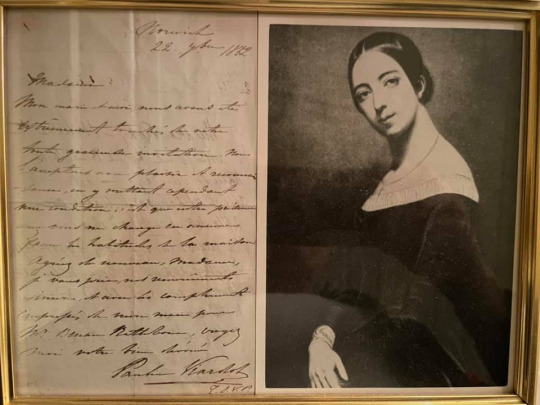 Norwich
22 7bre 18
Madame
Mon mari et moi nous avons été
extrêmement touchés de votre
toute gracieuse invitation. Nous
l'acceptons avec plaisir et reconnais
sance, en y mettant cependant
une condition, c'est que votre
ne change en
les habitudes de la maison
Agréez de nouveau, Madame,
je vous prie, nos remerciments
avec les compliments
de mon mari pour
Mr. Benson Rathbone, croyez
moi votre bien dévouée
Pauline Viardot